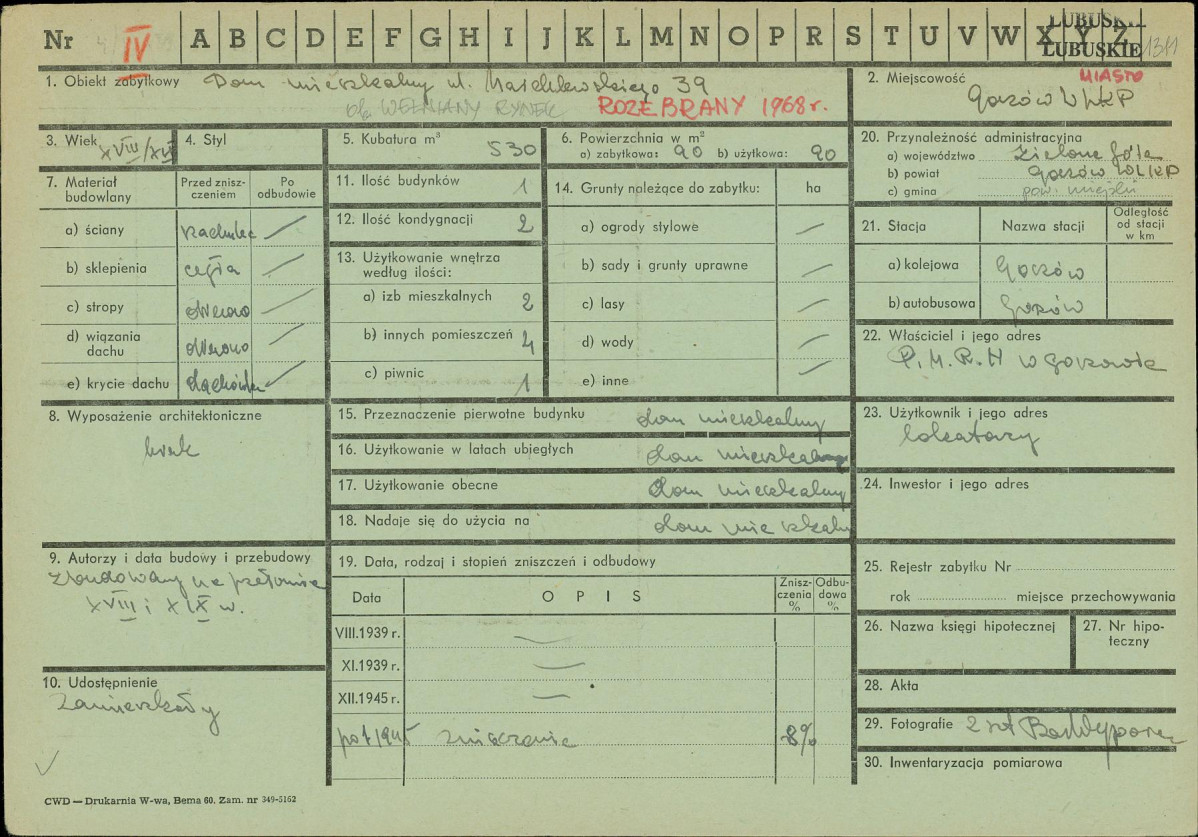 Nr IV A B C D E F G H I J K L M N O P R S T U V W X Y Z
LUBUSKIE
LUBUSKIE 1311
1. Obiekt zabytkowy Dom mieszkalny ul. Marchlewskiego 39
ob. WEŁNIANY RYNEK ROZEBRANY 1968 r.
2. Miejscowość MIASTO
Gorzów WLKP
3. Wiek XVIII/XIX
4. Styl
5. Kubatura m³ 530
6. Powierzchnia w m²
a) zabytkowa: 90 b) użytkowa: 90
20. Przynależność administracyjna
a) województwo Zielona Góra
b) powiat Gorzów WLKP
c) gmina pow. miejski
7. Materiał budowlany
Przed znisz-
czeniem
Po
odbudowie
a) ściany —
b) sklepienia cegła —
c) stropy drewno —
d) wiązania
dachu drewno —
e) krycie dachu dachówka —
11. Ilość budynków 1
12. Ilość kondygnacji 2
13. Użytkowanie wnętrza
według ilości:
a) izb mieszkalnych 2
b) innych pomieszczeń 4
c) piwnic 1
14. Grunty należące do zabytku: ha
a) ogrody stylowe —
b) sady i grunty uprawne —
c) lasy —
d) wody —
e) inne —
21. Stacja Nazwa stacji Odległość
od stacji
w km
a) kolejowa Gorzów
b) autobusowa Gorzów
22. Właściciel i jego adres
P.M.R.N w Gorzowie
8. Wyposażenie architektoniczne
brak
15. Przeznaczenie pierwotne budynku dom mieszkalny
16. Użytkowanie w latach ubiegłych dom mieszkalny
17. Użytkowanie obecne dom mieszkalny
18. Nadaje się do użycia na dom mieszkalny
23. Użytkownik i jego adres
lokatorzy
24. Inwestor i jego adres
9. Autorzy i data budowy i przebudowy
Zbudowany na przełomie
XVIII i XIX w.
19. Data, rodzaj i stopień zniszczeń i odbudowy
Data OPIS Znisz-
czenia
% Odbu-
dowa
%
VIII.1939 r. —
XI.1939 r. —
XII.1945 r. —
po 1945 zniszczenie 8%
25. Rejestr zabytku Nr
rok miejsce przechowywania
26. Nazwa księgi hipotecznej
27. Nr hipo-
teczny
10. Udostępnienie
Zamieszkały
28. Akta
29. Fotografie 2 szt
30. Inwentaryzacja pomiarowa
CWD — Drukarnia W-wa, Bema 60. Zam. nr 349-5162